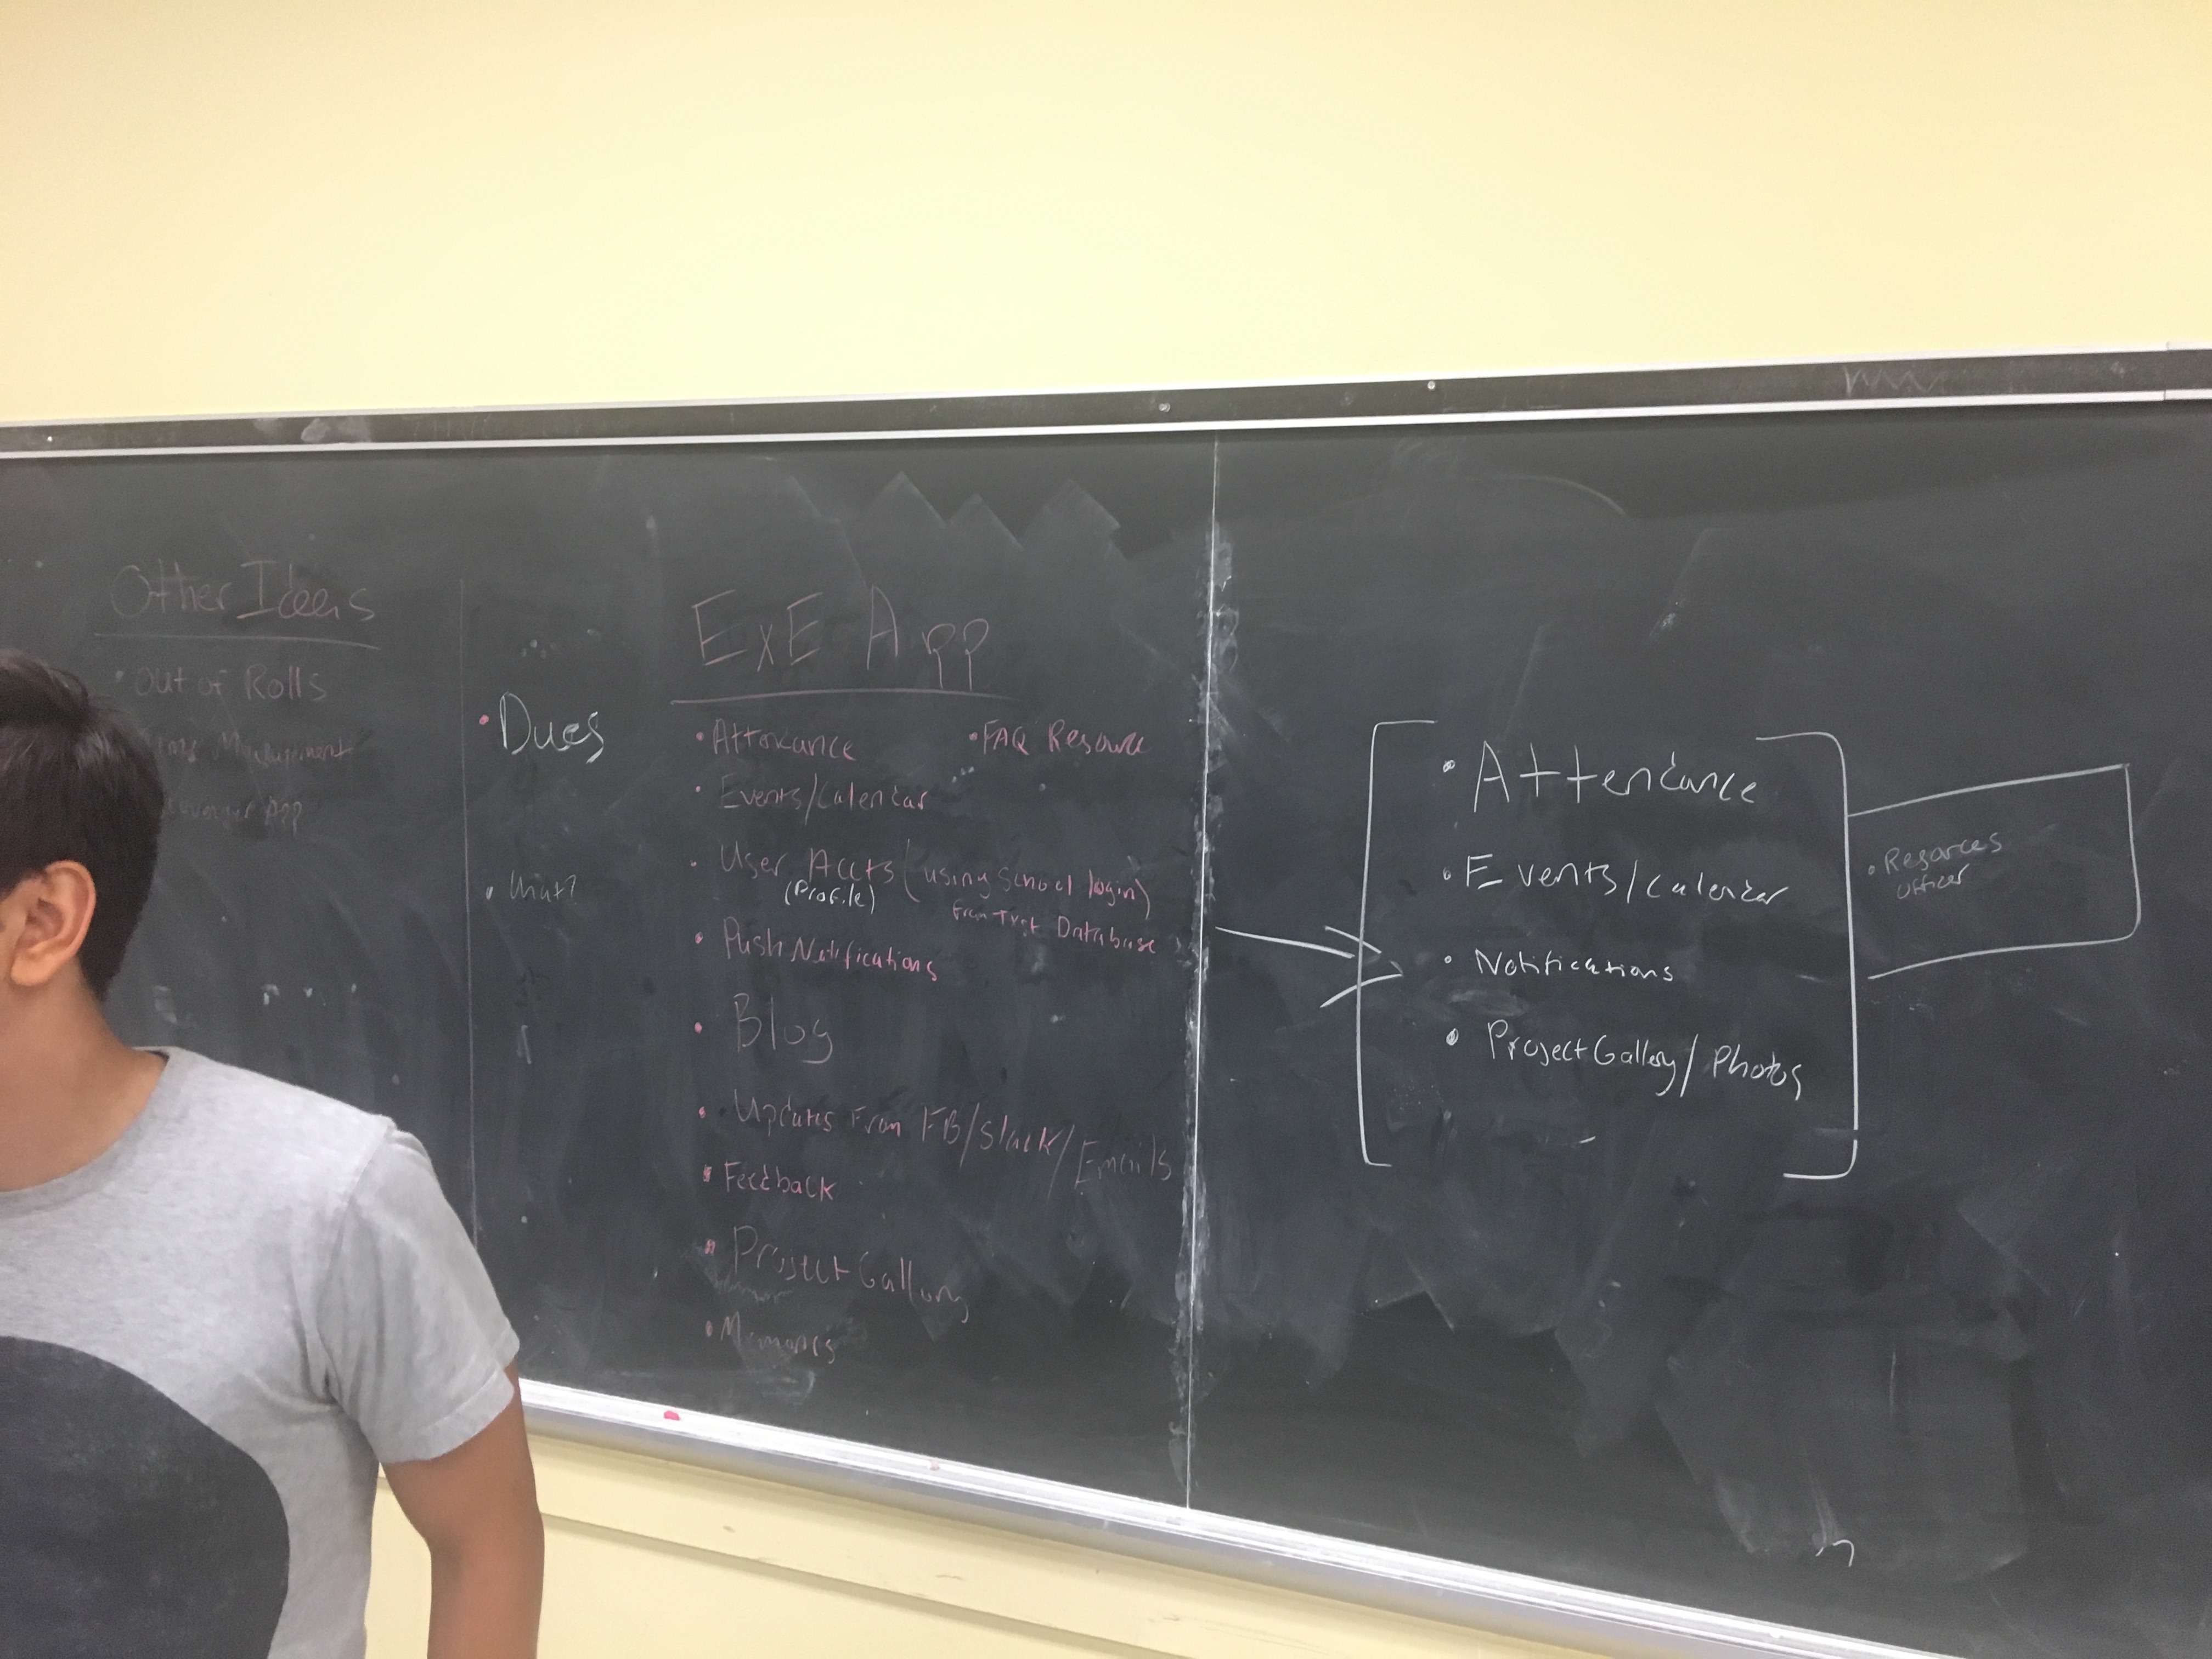 Other Ideas
• Out of Rolls
Management
App
• Dues
• What?
ExE App
• Attendance
• FAQ Resource
• Events/Calendar
• User Accts (using School login)
(Profile)
from Database
• Push Notifications
• Blog
• Updates From FB/Slack/Emails
• Feedback
• Project Gallery
• Memories
• Attendance
• Events/Calendar
• Notifications
• Project Gallery/Photos
• Resources
Officer